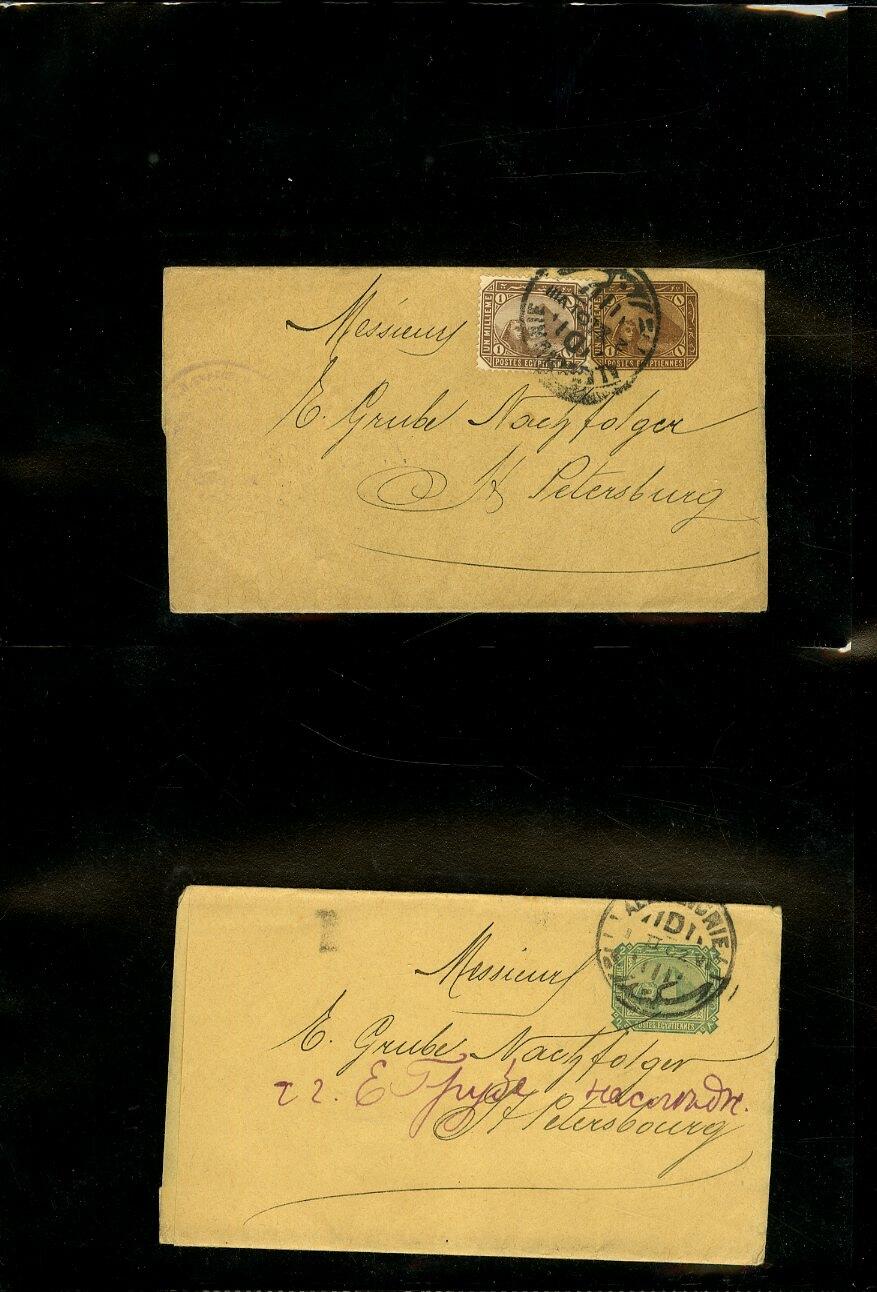 Messieurs
1 1
UN MILLIEME
1 1
POSTES EGYPTIENNES
UN MILLIEME
POSTES EGYPTIENNES
E. Grube Nachfolger
St Petersburg
ALEXANDRIE
Messieurs
POSTES EGYPTIENNES
E. Grube Nachfolger
г г. Е Грубе наследн.
St Petersbourg